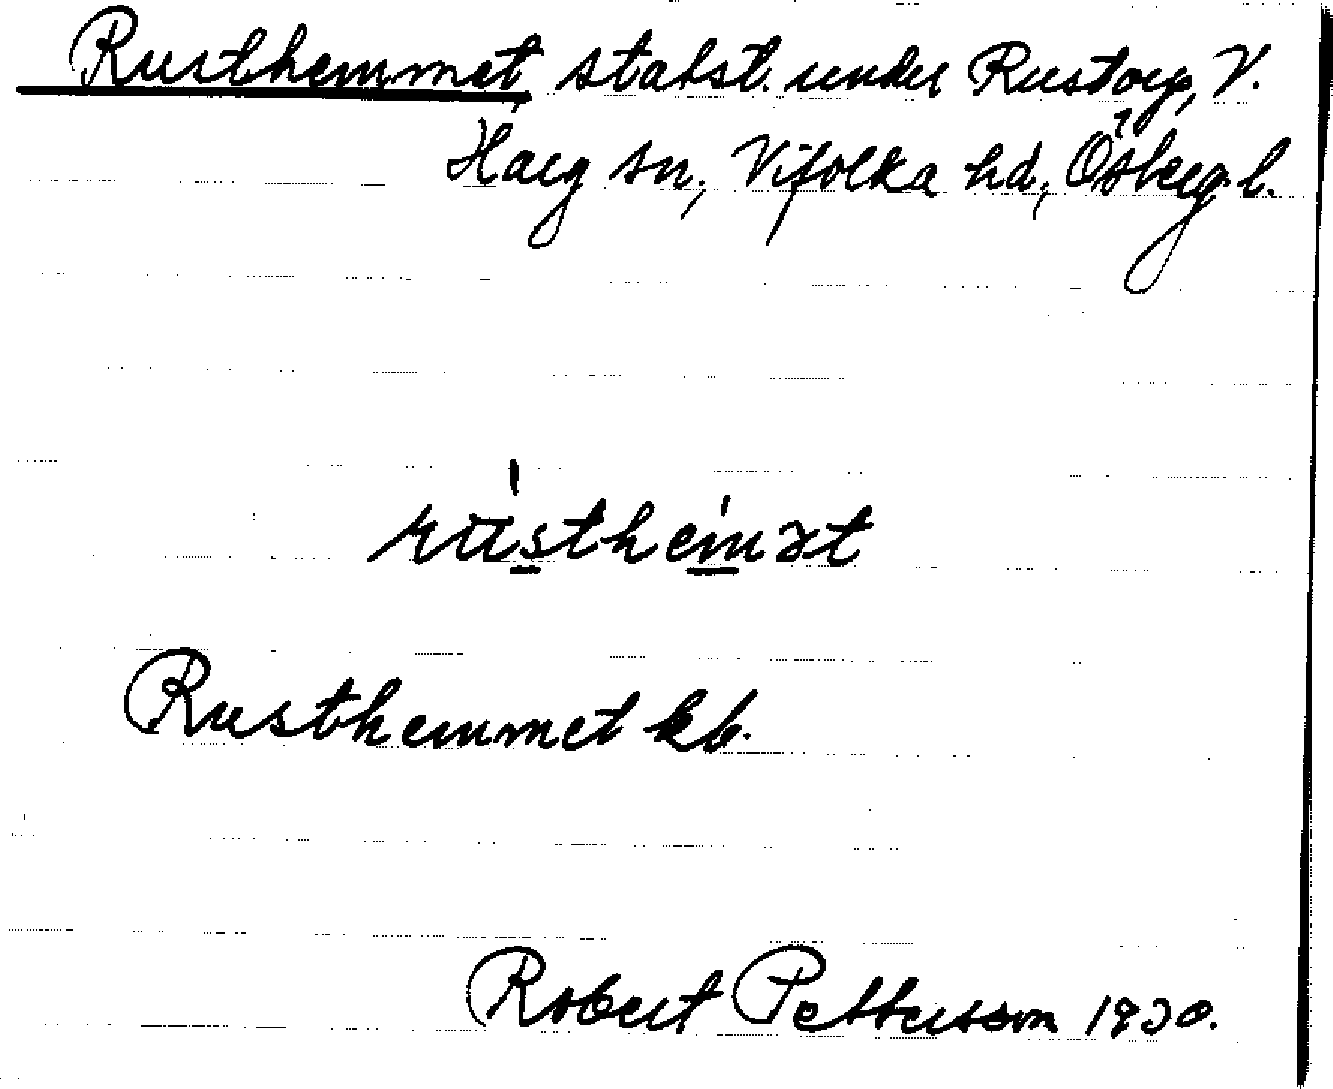 Rusthemmet, stabst. under Rustorp, V.
Harg sn, Vifolka hd, Österg. l.
Rusthemmet kb.
Robert Pettersson 1930.